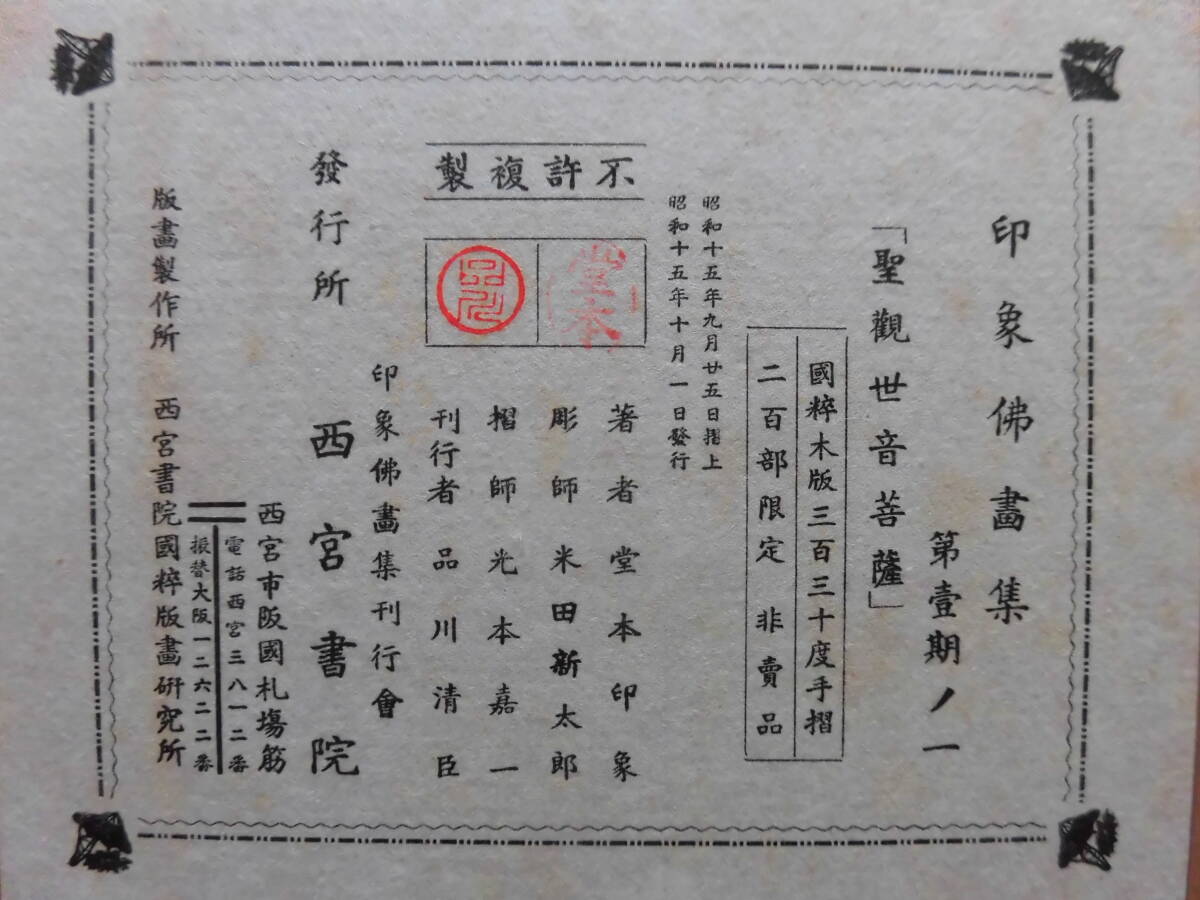 印象佛畫集
第壹期ノ一
「聖觀世音菩薩」
國粹木版三百三十度手摺
二百部限定 非賣品
昭和十五年九月廿五日摺上
昭和十五年十月一日發行
不許複製
堂本
品川
著者堂本印象
彫師米田新太郎
摺師光本嘉一
刊行者品川清臣
印象佛畫集刊行會
發行所 西宮書院
西宮市阪國札場筋
電話西宮三八一二番
振替大阪一二六二二番
版畫製作所 西宮書院國粹版畫研究所